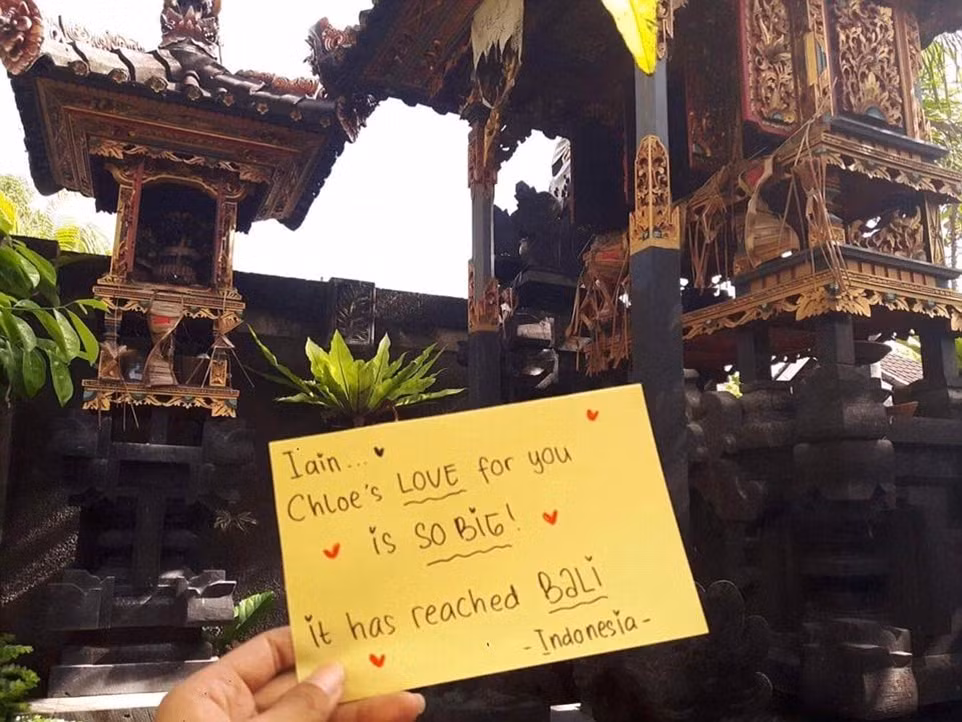 Iain...
Chloe's LOVE for you
is SO BIG!
it has reached BaLi
- Indonesia -